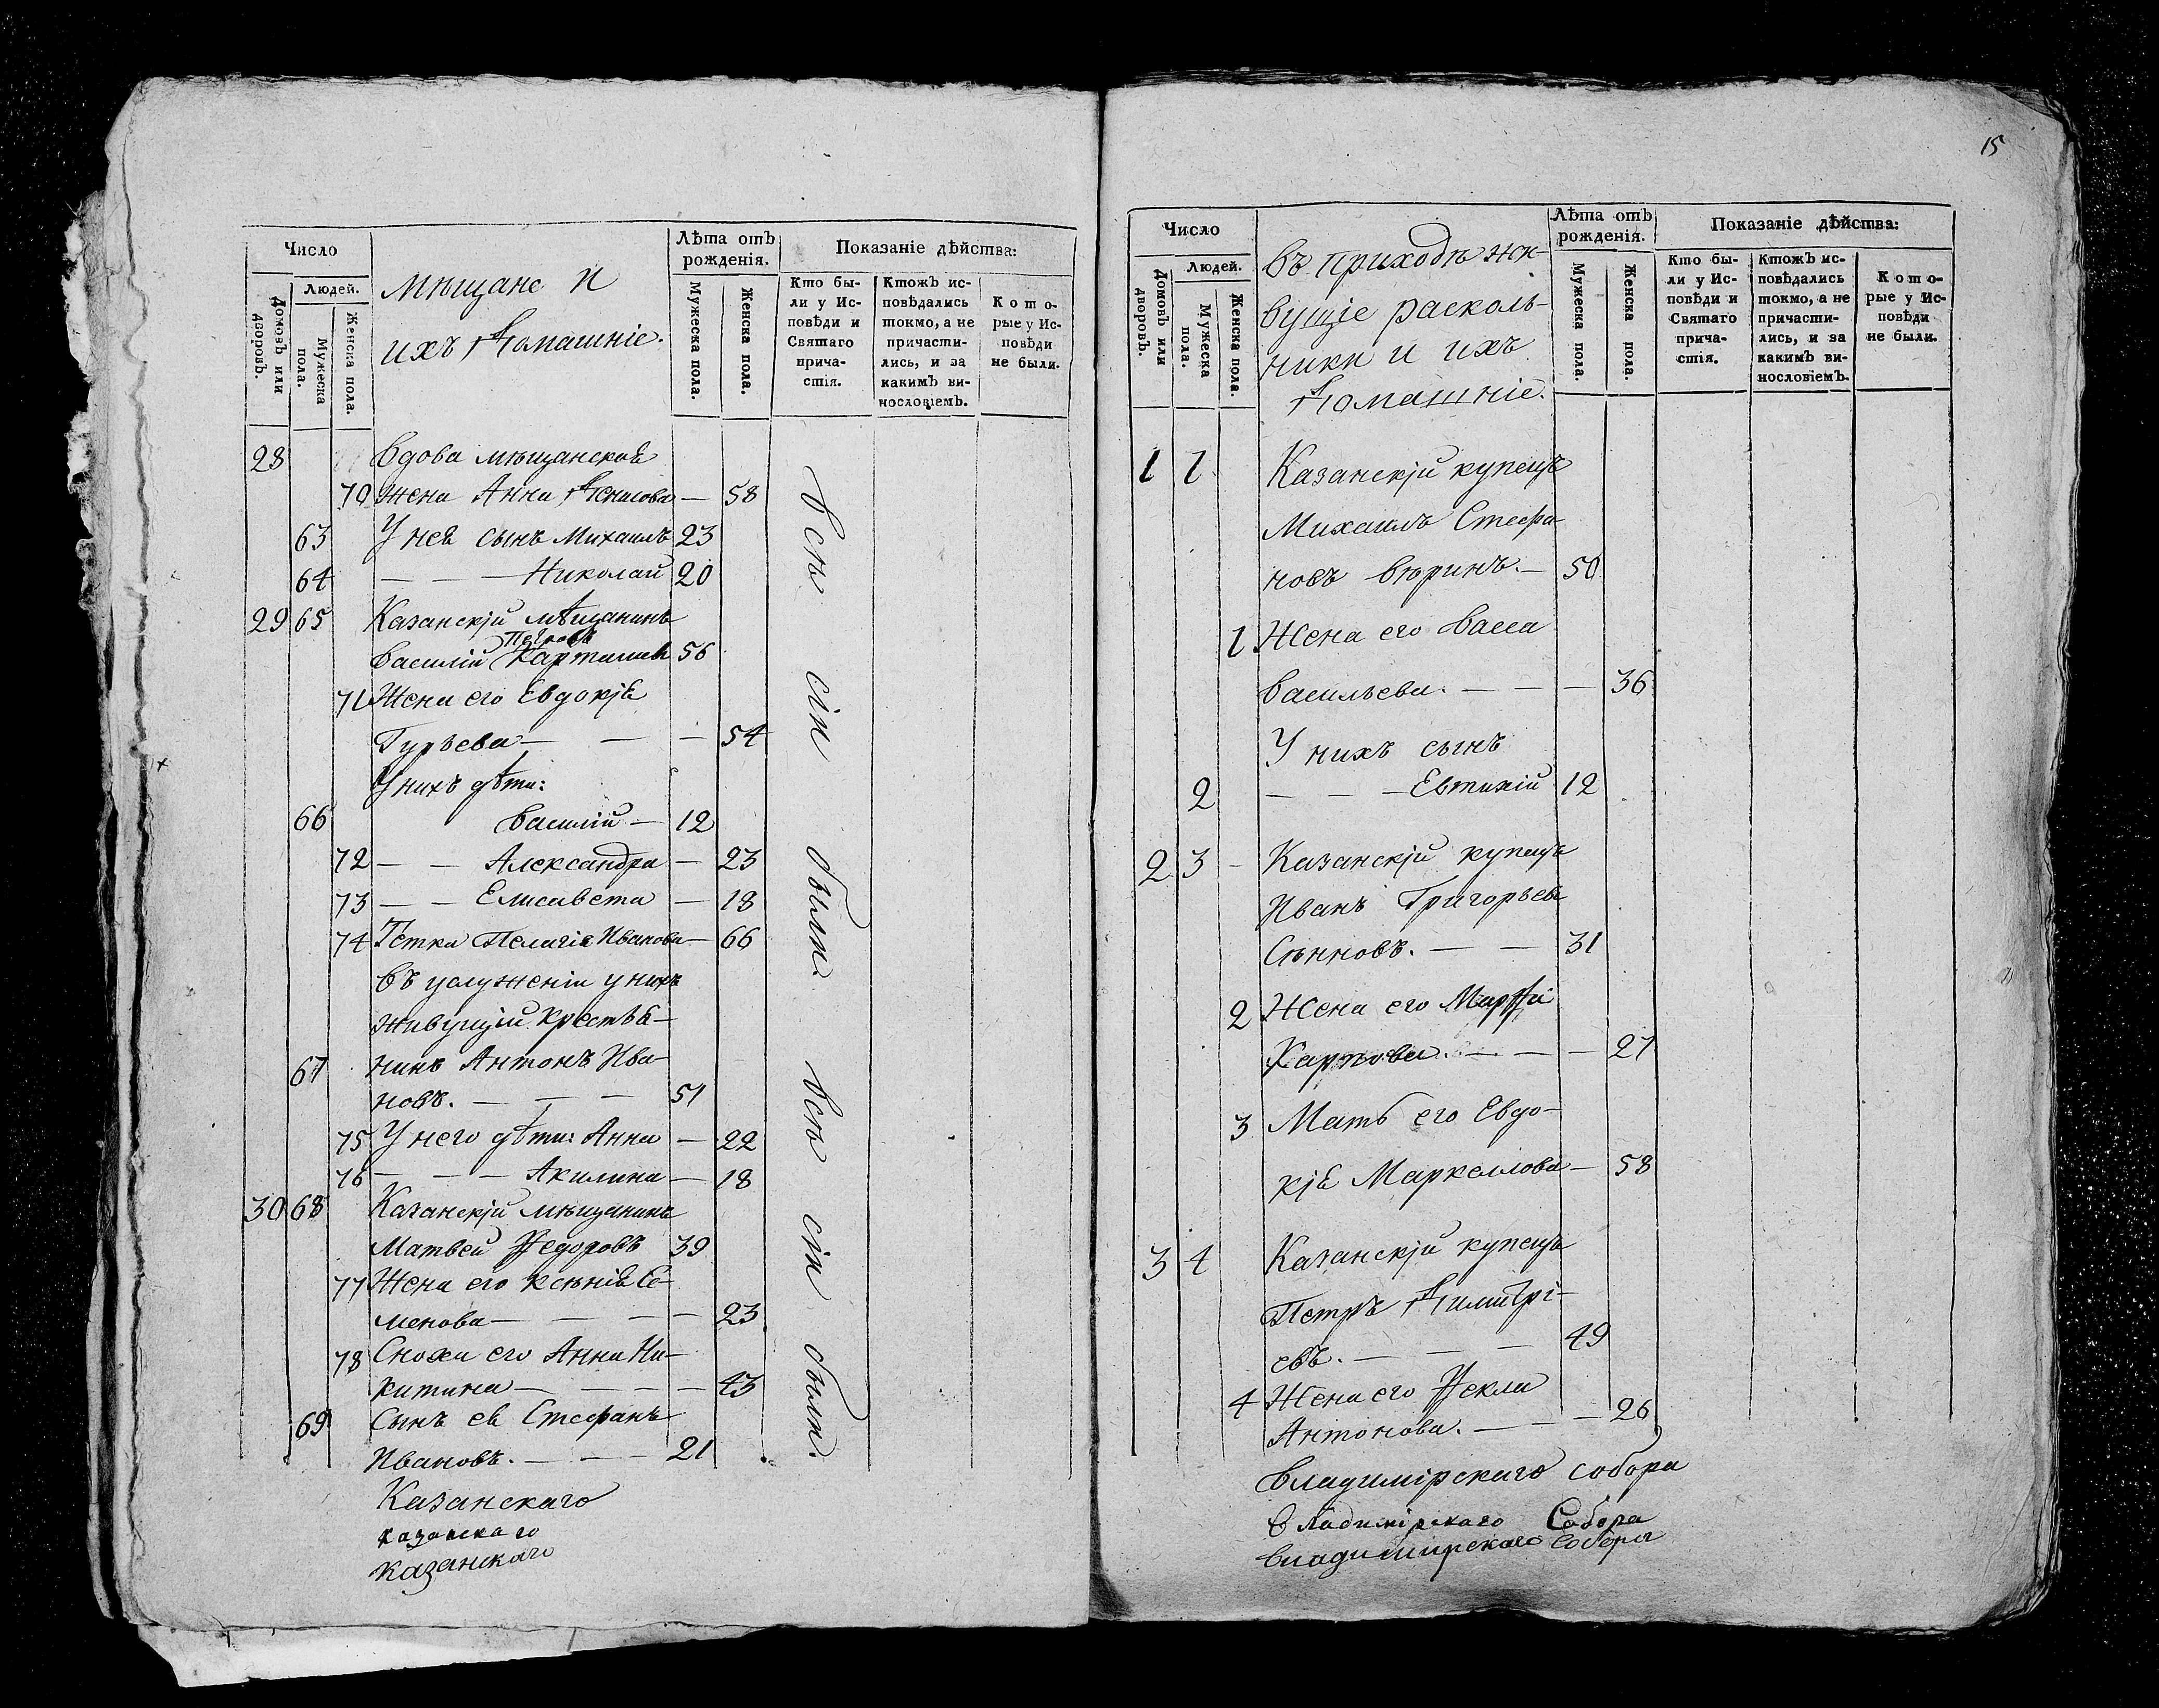 Число
Людей.
Домовъ или дворовъ.
Мужеска пола.
Женска пола.
Мѣщане и
ихъ домашніе.
Лѣта отъ
рожденія.
Мужеска пола.
Женска пола.
Показаніе дѣйства:
Кто бы-
ли у Ис-
повѣди и
Святаго
прича-
стія.
Ктожъ ис-
повѣдались
токмо, а не
причасти-
лись, и за
какимъ ви-
нословіемъ.
Кото-
рые у Ис-
повѣди
не были.
28 Вдова мѣщанская
70 жена Анна Денисова — 58
63 У нея сынъ Михаилъ 23
64 — — — Николай 20
29 65 Казанскій мѣщанинъ
Петровъ
Василій 56
71 Жена его Евдокія
Гурьева — — — 54
У нихъ дѣти:
66 Василій — 12
72 — — Александра — 23
73 — — Елисавета — 18
74 Тетка Пелагія Иванова — 66
Въ услуженіи у нихъ
живущій крестья-
67 нинъ Антонъ Ива-
новъ. — — — 51
75 У него дѣти: Анна — 22
76 — — — Акилина — 18
30 68 Казанскій мѣщанинъ
Матвей Ѳедоровъ 39
77 Жена его Ксенія Се-
менова — — — — 23
78 Сноха его Анна Ни-
китина — — — — 43
69 Сынъ ея Стефанъ
Ивановъ. — — — 21
Всѣ сіи были.
Всѣ сіи были.
Казанскаго
казанскаго
Казанскаго
15
Число
Людей.
Домовъ или дворовъ.
Мужеска пола.
Женска пола.
Въ приходѣ жи-
вущіе расколь-
ники и ихъ
домашніе.
Лѣта отъ
рожденія.
Мужеска пола.
Женска пола.
Показаніе дѣйства:
Кто бы-
ли у Ис-
повѣди и
Святаго
прича-
стія.
Ктожъ ис-
повѣдались
токмо, а не
причасти-
лись, и за
какимъ ви-
нословіемъ.
Кото-
рые у Ис-
повѣди
не были.
1 1 Казанскій купецъ
Михаилъ Стефа-
новъ Вѣринъ. — 50
1 Жена его Васса
Васильева. — — — 36
У нихъ сынъ
2 — — — Евтихій 12
2 3 — Казанскій купецъ
Иванъ Григорьевъ
31
2 Жена его Марѳа
Карпова. — — — 27
3 Мать его Евдо-
кія Маркеллова — 58
3 4 Казанскій купецъ
Петръ Димитрі-
евъ. — — — 49
4 Жена его Ѳекла
Антонова. — — — 26
Владимірскаго собора
Владимірскаго Собора
Владимирскаго Собора